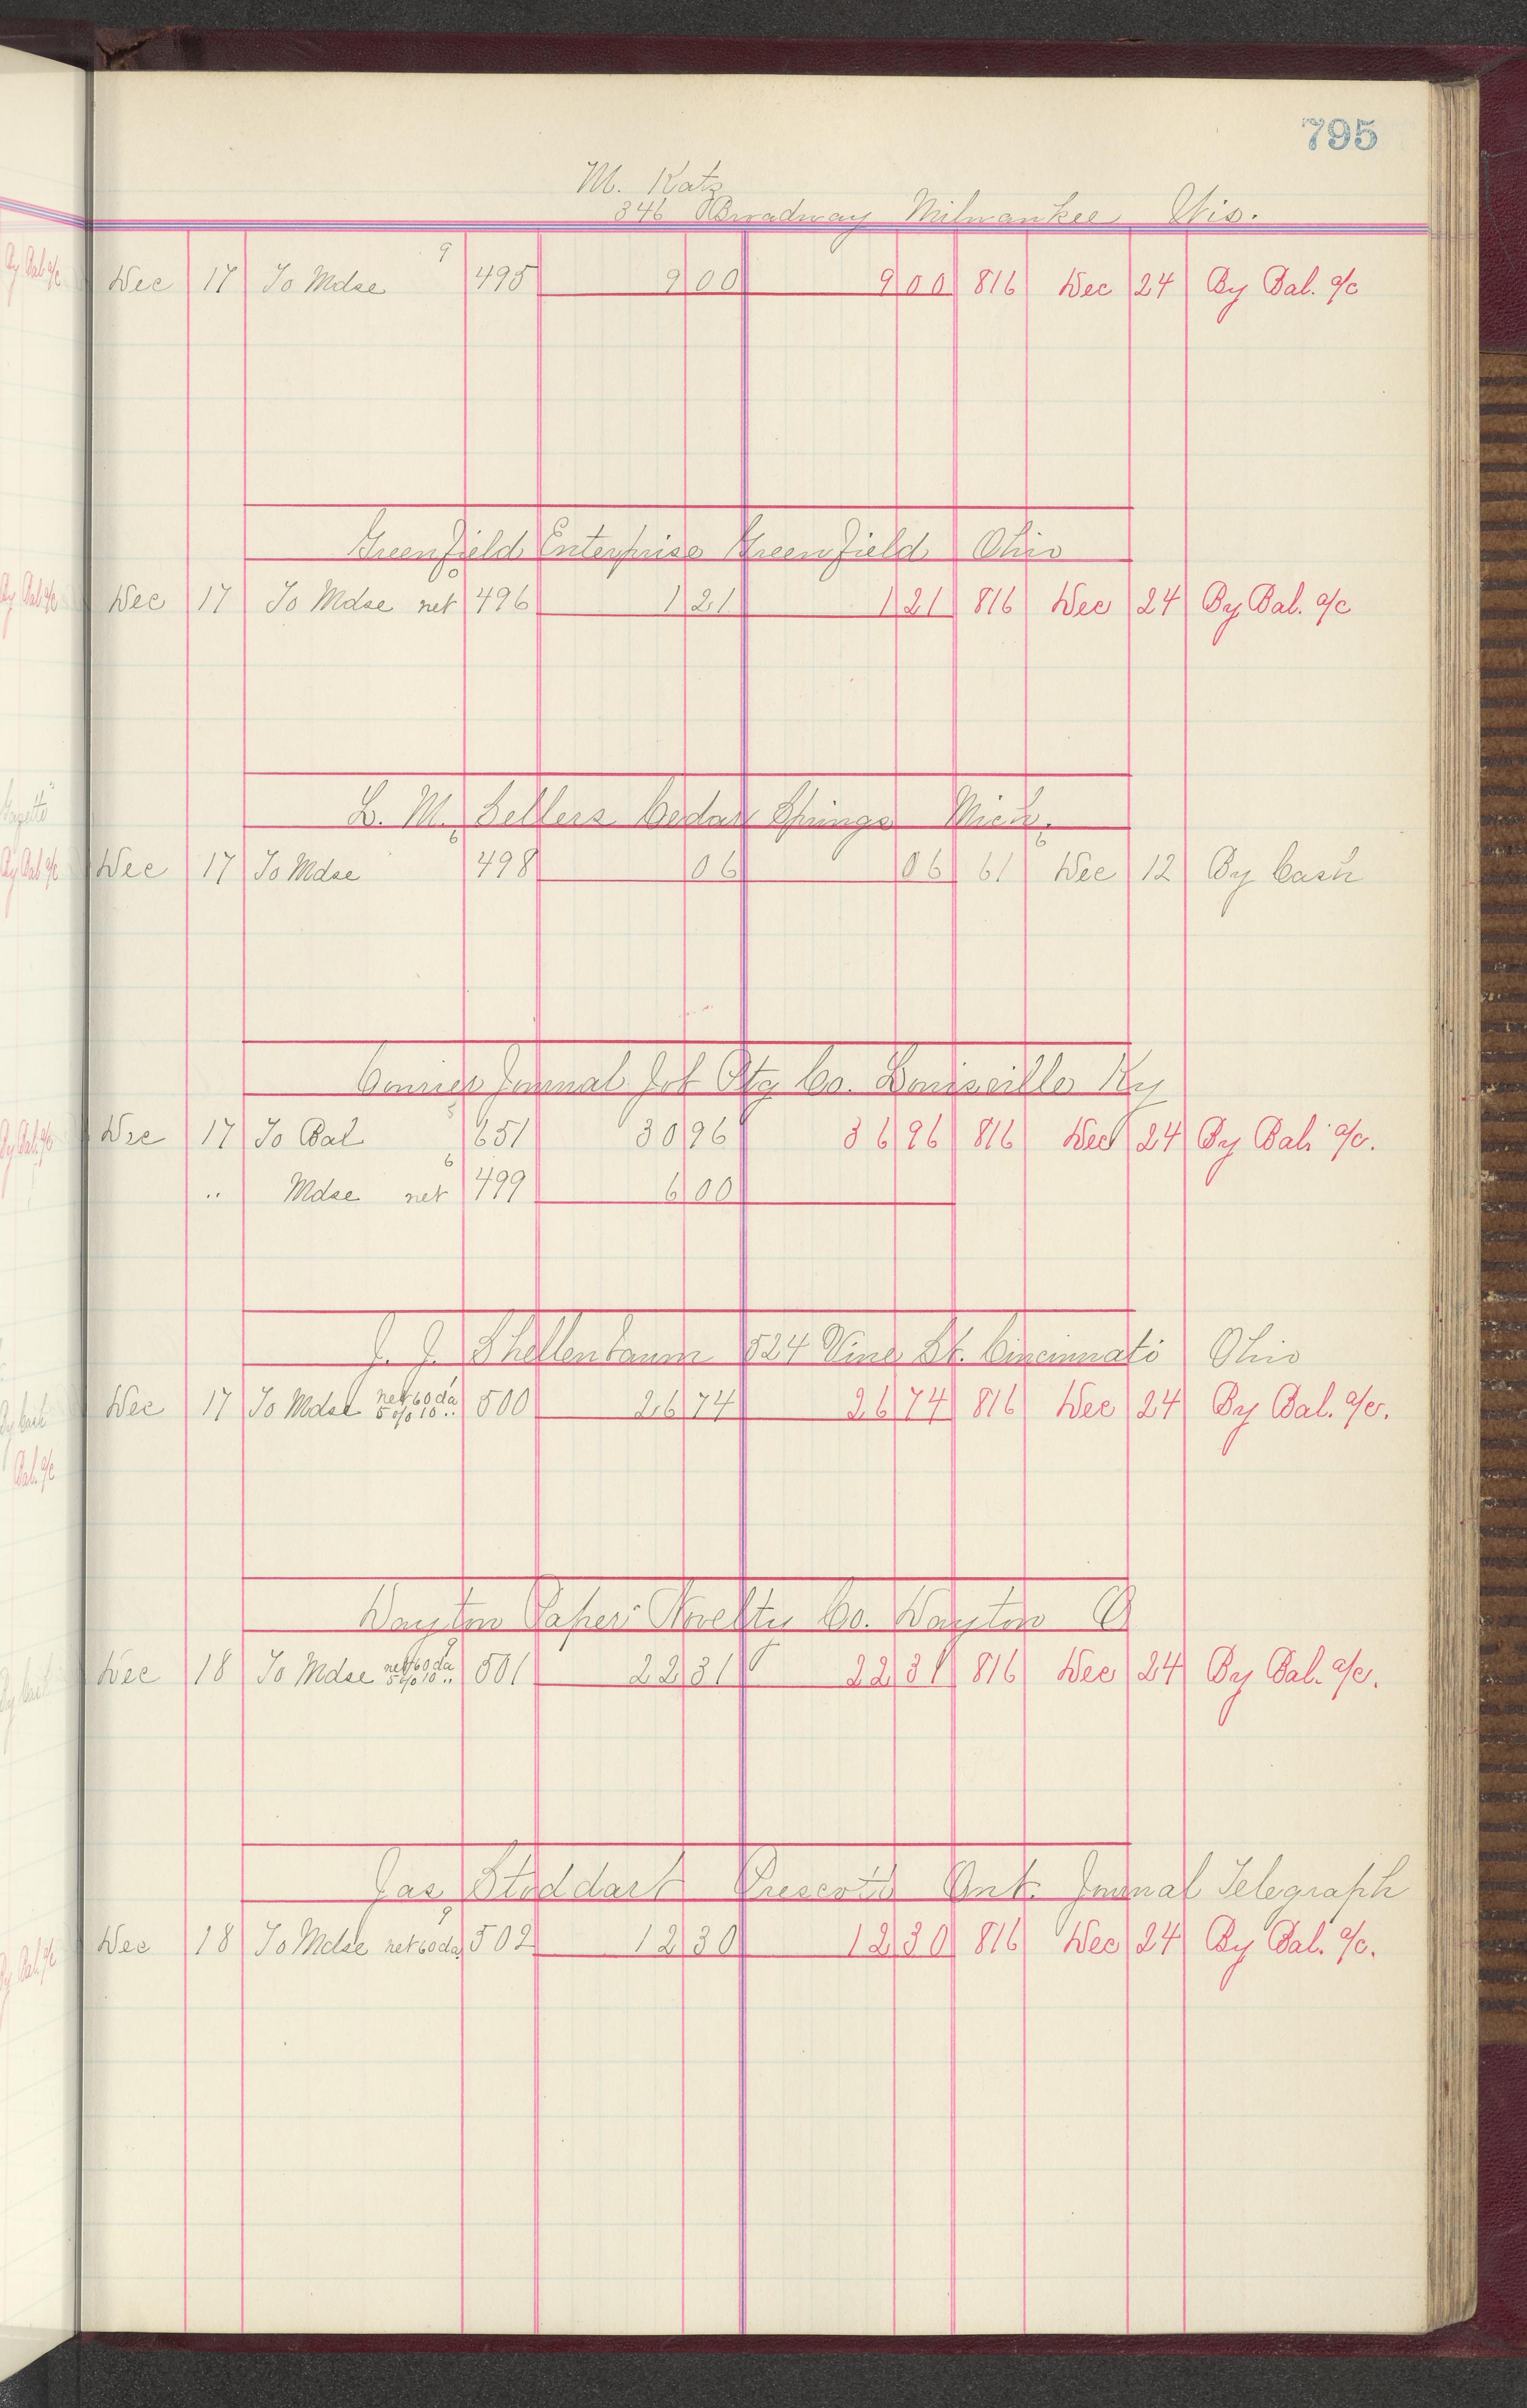 795
M. Katz
346 Broadway Milwaukee Wis.
9
Dec 17 To Mdse 495 9 00 9 00 816 Dec 24 By Bal. a/c
Greenfield Enterprise Greenfield Ohio
0
Dec 17 To Mdse net 496 1 21 1 21 816 Dec 24 By Bal. a/c
L. M. Sellers Cedar Springs Mich.
6 6
Dec 17 To Mdse 498 06 06 61 Dec 12 By Cash
Courier Journal Job Ptg Co. Louisville Ky
Dec 17 To Bal 651 30 96 36 96 816 Dec 24 By Bal. a/c.
6
" Mdse net 499 6 00
J. J. Shellenbaum 524 Vine St. Cincinnati Ohio
Dec 17 To Mdse net 60 da 5% 10 " 500 26 74 26 74 816 Dec 24 By Bal. a/c.
Dayton Paper Novelty Co. Dayton O
Dec 18 To Mdse net 60 da 5% 10 " 501 22 31 22 31 816 Dec 24 By Bal. a/c.
Jas Stoddart Prescott Ont. Journal Telegraph
9
Dec 18 To Mdse net 60 da 502 12 30 12 30 816 Dec 24 By Bal. a/c.
By Bal a/c
By Bal a/c
By Bal a/c
By Bal. a/c
By Cash
Bal. a/c
By Cash
By Bal. a/c